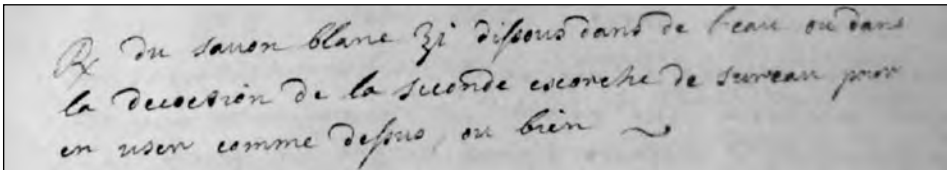 ℞ du sauon blanc ℥i dissous dans de l'eau ou dans
la decoction de la seconde escorche de sureau pour
en user comme dessus, ou bien